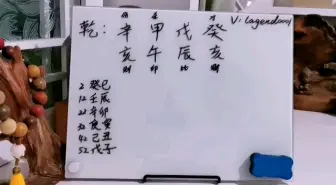 Vi: lagendood
乾: 辛 甲 戊 癸
亥 午 辰 亥
2 癸巳
12 壬辰
22 辛卯
32 庚寅
42 己丑
52 戊子